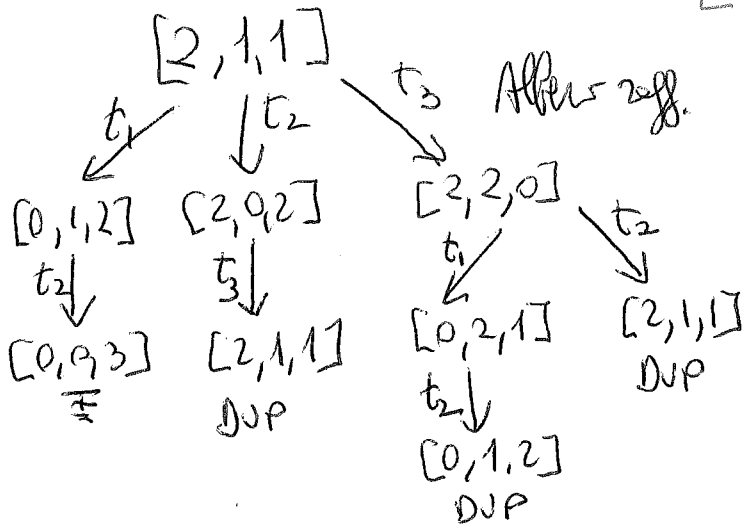 [2,1,1]
t1 t2 t3 Albero ragg.
[0,1,2] [2,0,2] [2,2,0]
t2 t3 t1 t2
[0,0,3] [2,1,1] [0,2,1] [2,1,1]
DUP DUP
t2
[0,1,2]
DUP